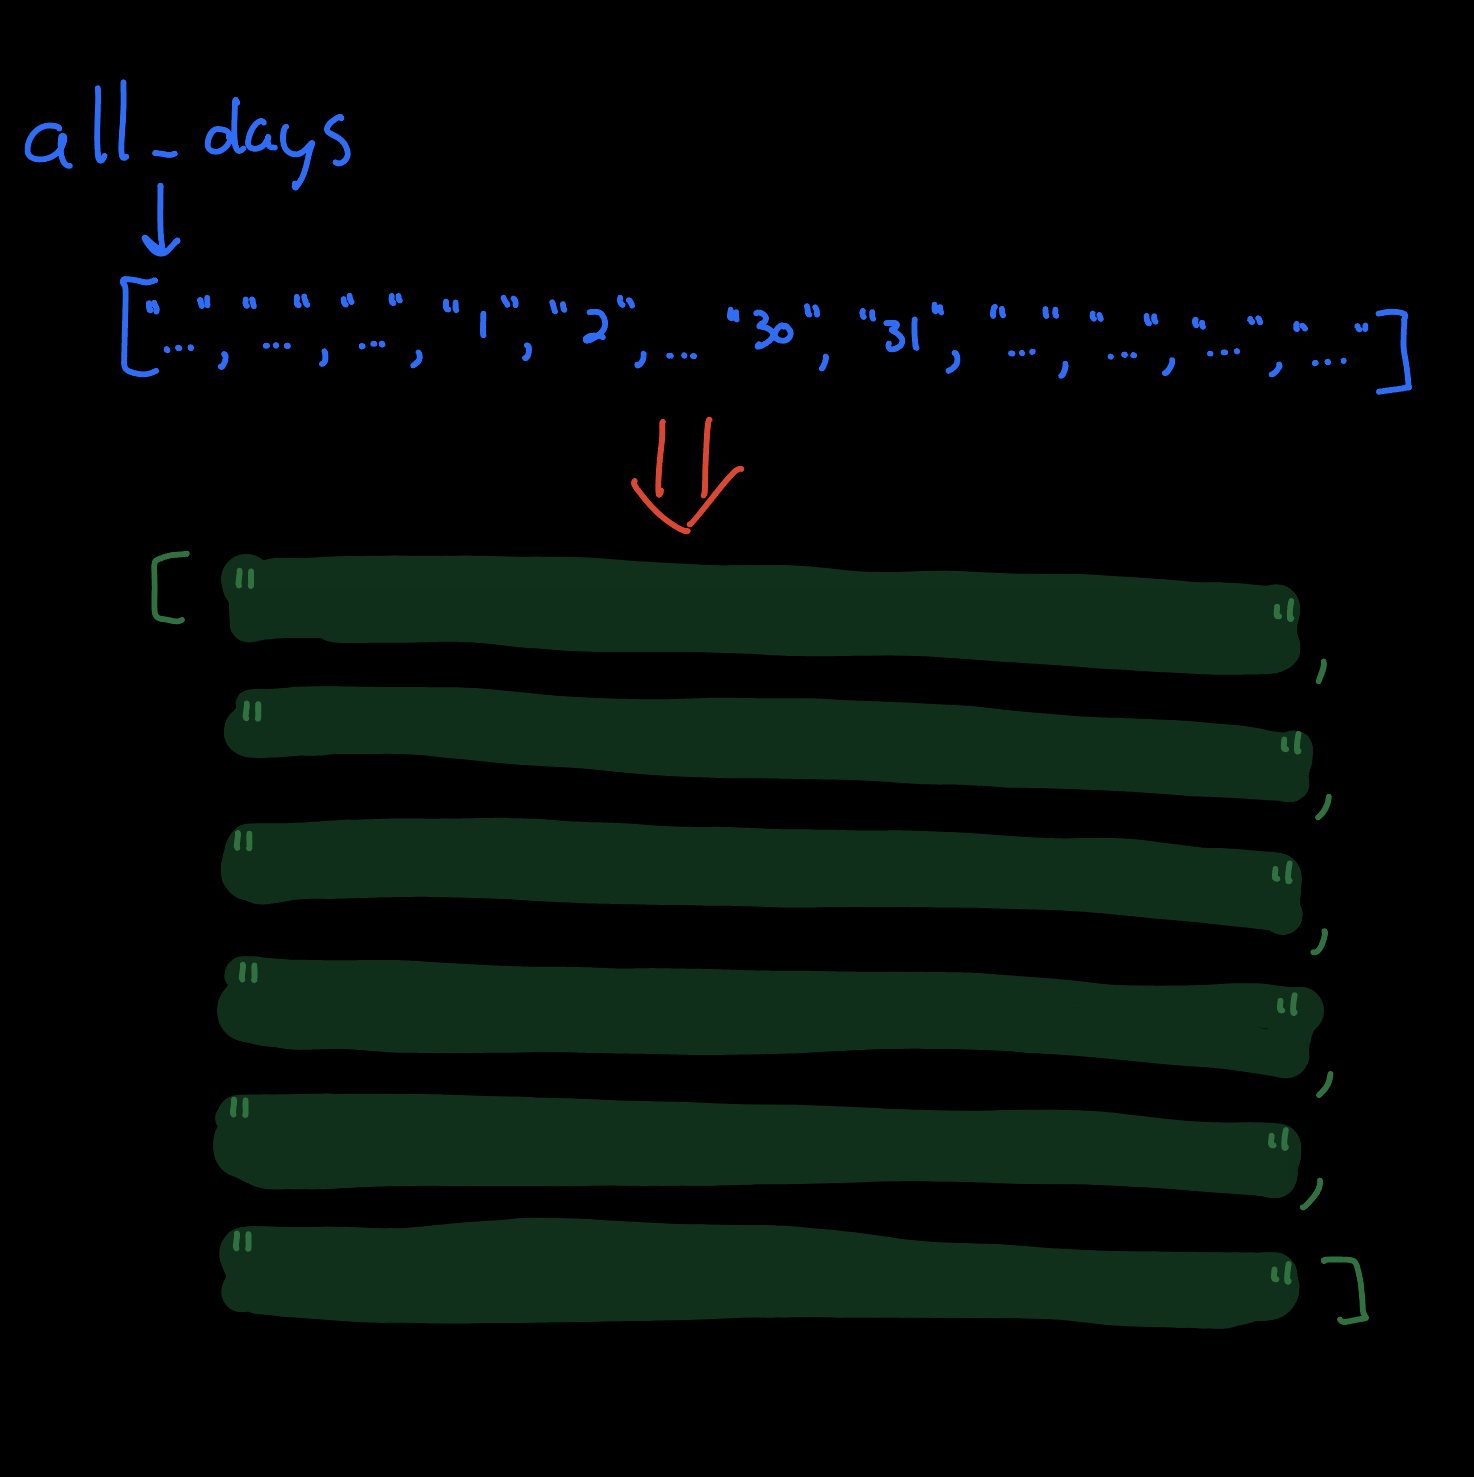 all_days
["...", "...", "...", "1", "2", ... "30", "31", "...", "...", "...", "..."]
[ " ",
" ",
" ",
" ",
" ",
" " ]